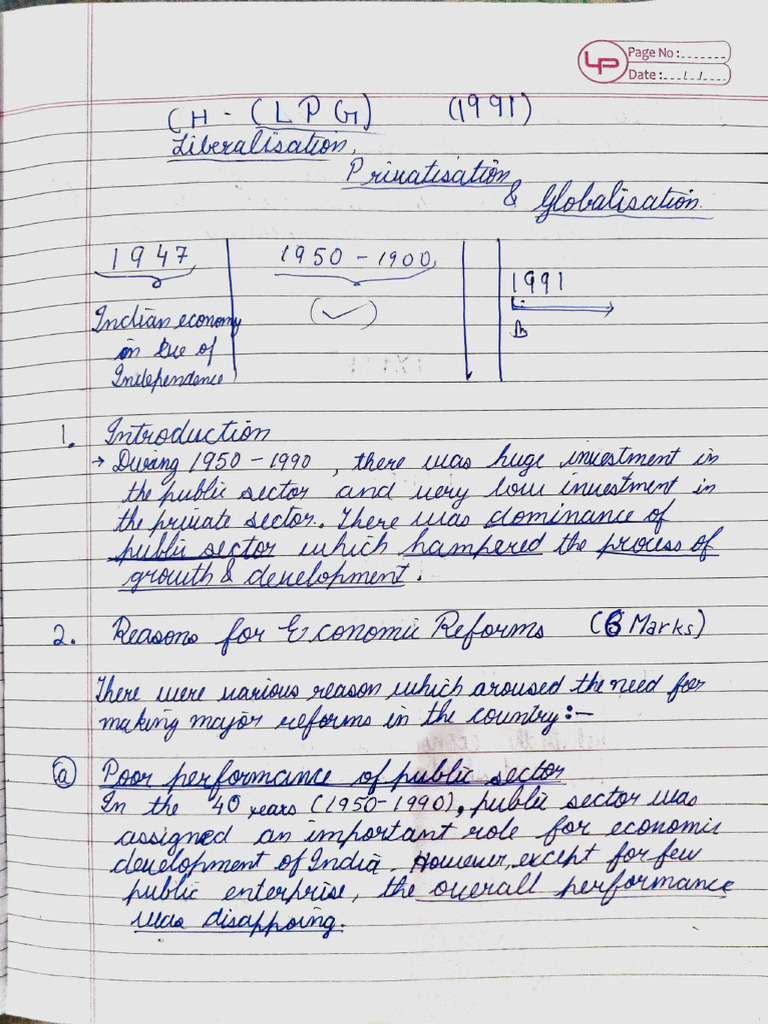 LP
Page No :.......
Date :..../..../....
CH - (LPG) (1991)
Liberalisation,
Privatisation
& Globalisation.
1947 1950 - 1900
1991
Indian economy
in Eve of
Independence
1. Introduction
→ During 1950 - 1990, there was huge investment in
the public sector and very low investment in
the private sector. There was dominance of
public sector which hampered the process of
growth & development.
2. Reasons for Economic Reforms (6 Marks)
There were various reason which aroused the need for
making major reforms in the country :-
(a) Poor performance of public sector
In the 40 years (1950-1990), public sector was
assigned an important role for economic
development of India. However, except for few
public enterprise, the overall performance
was disappoing.